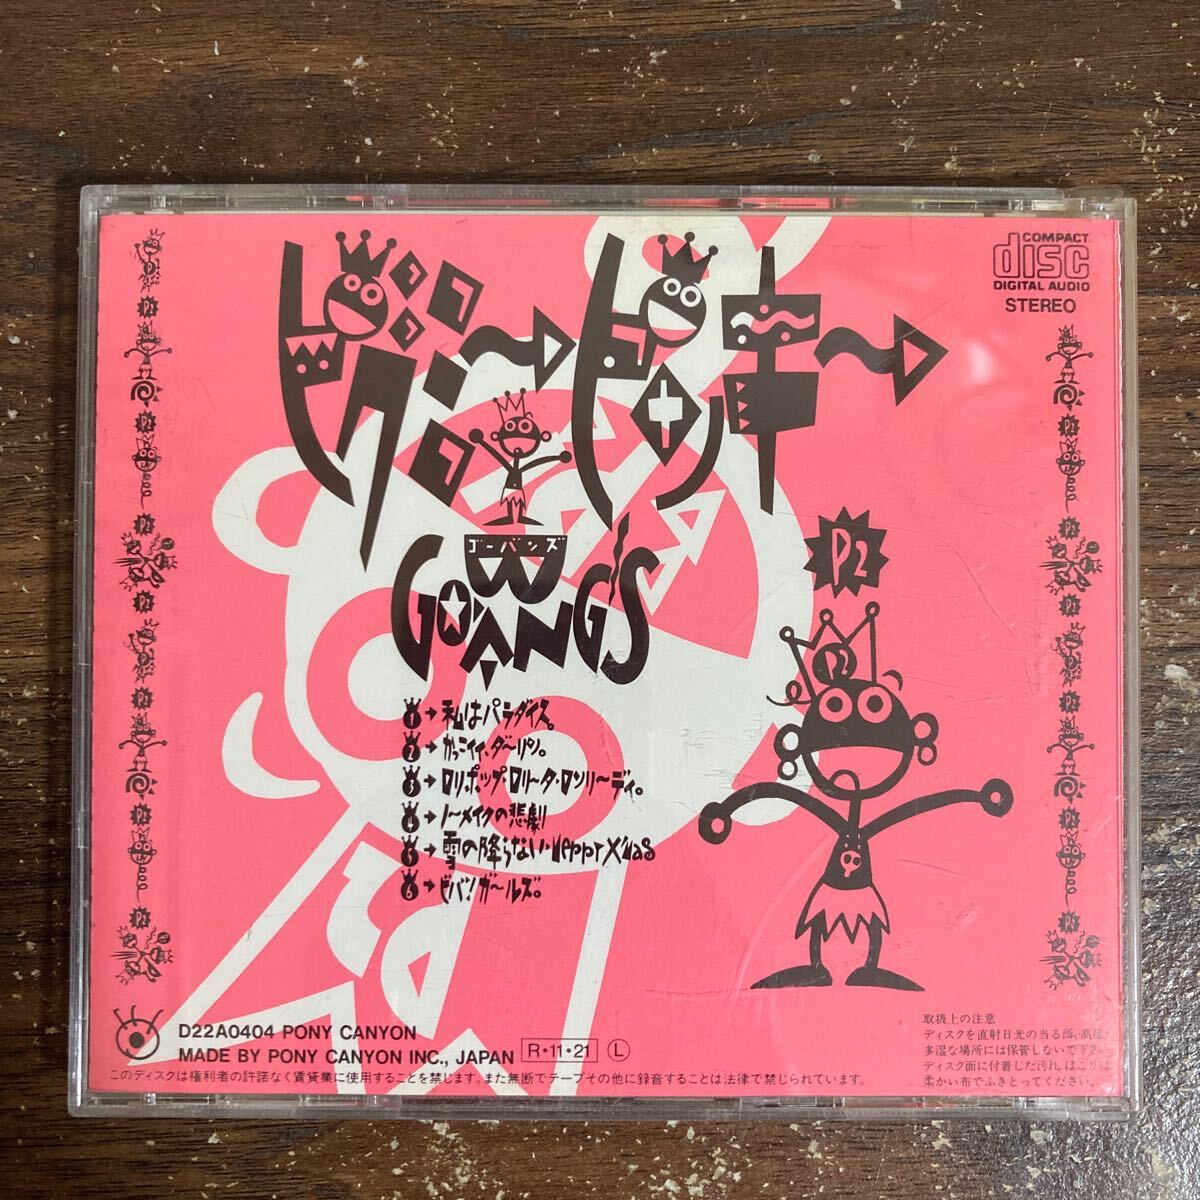 COMPACT
disc
DIGITAL AUDIO
STEREO
ピグミー→ドッキー→
ゴーバンズ
GO-BANG'S
P2
P2
1→私はパラダイス。
2→かっこイイ、ダーリン。
3→ロリポップ・ロリータ・ロンリーディ。
4→ノーメイクの悲劇
5→雪の降らないMerry X'mas
6→ビバ!ガールズ。
D22A0404 PONY CANYON
MADE BY PONY CANYON INC., JAPAN R・11・21 L
このディスクは権利者の許諾なく賃貸業に使用することを禁じます。また無断でテープその他に録音することは法律で禁じられています。
取扱上の注意
ディスクを直射日光の当る所、高温・
多湿な場所には保管しないで下さい。
ディスク面に付着した汚れ、ほこりは
柔かい布でふきとってください。